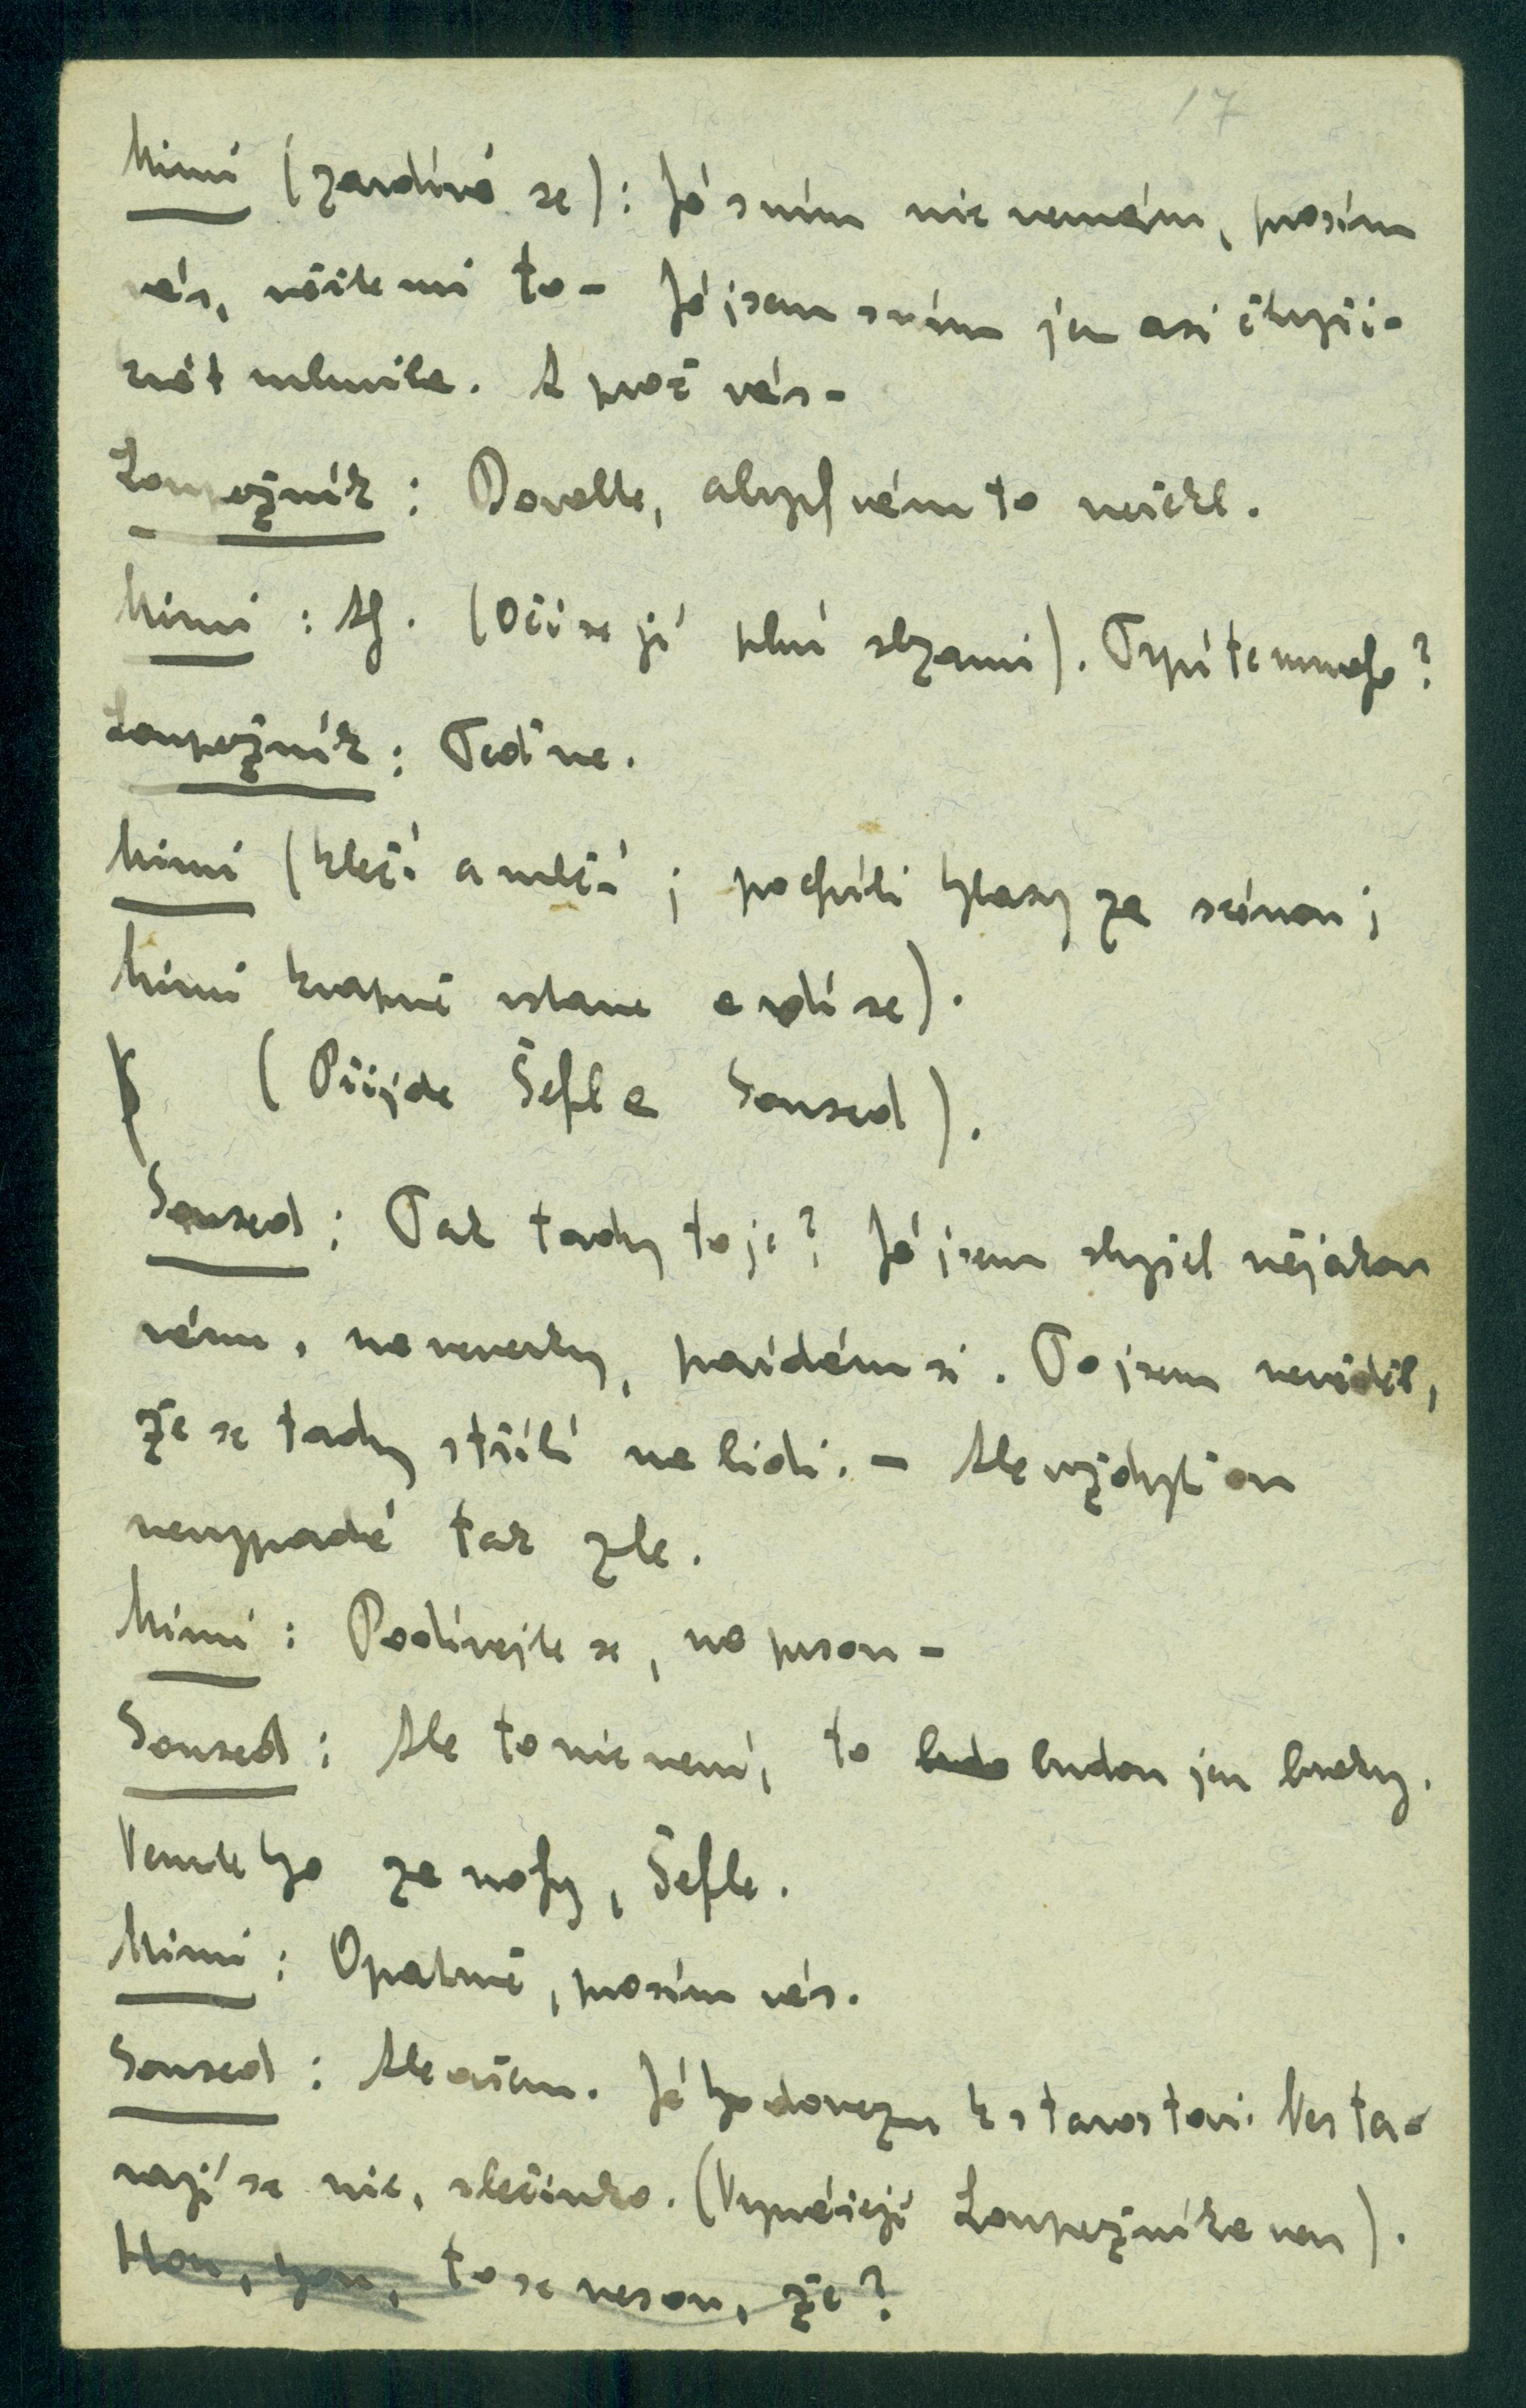 17
Mimi (zardívá se): Já s ním nic nemám, prosím
vás, věřte mi to – Já jsem s ním jen asi čtyři-
krát mluvila. A proč vás –
Loupežník: Dovolte, abych vám to neřekl.
Mimi: Ah. (Oči se jí plní slzami). Trpíte mnoho?
Loupežník: Teď ne.
Mimi (klečí a mlčí; pochvíli hlasy za scénou;
Mimi kvapně vstane a vdí se).
(Přijde Šefl a Soused).
Soused: Tak tady to je? Já jsem slyšel nějakou
ránu, na veverky, povídám si. To jsem nevěděl,
že se tady střílí na lidi. – Ale vždyť on
nevypadá tak zle.
Mimi: Podívejte se, na prsou –
Soused: Ale to nic není, to budo budou jen broky.
Vemte ho za nohy, Šefle.
Mimi: Opatrně, prosím vás.
Soused: Ale ovšem. Já ho dovezu k starostovi. Nesta-
rají se nic, slečinko. (Vynášejí Loupežníka ven).
Hou, hou, to se nesou, že?